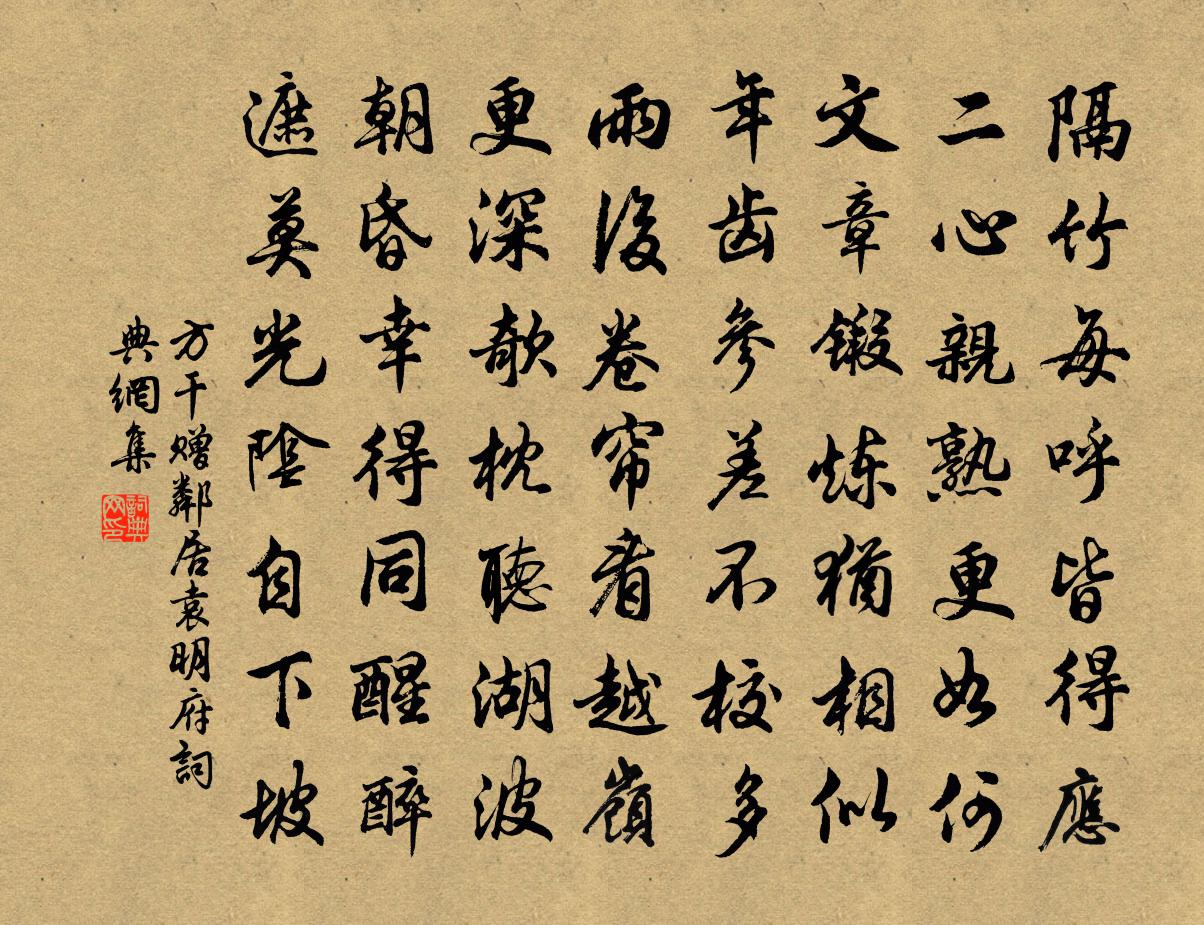 隔竹每呼皆得應
二心親熟更如何
文章鍛炼猶相似
年齿參差不校多
雨後卷帘看越嶺
更深欹枕聽湖波
朝昏幸得同醒醉
遮莫光陰自下坡
方干赠鄰居袁明府詞
典網集
詞典
网印